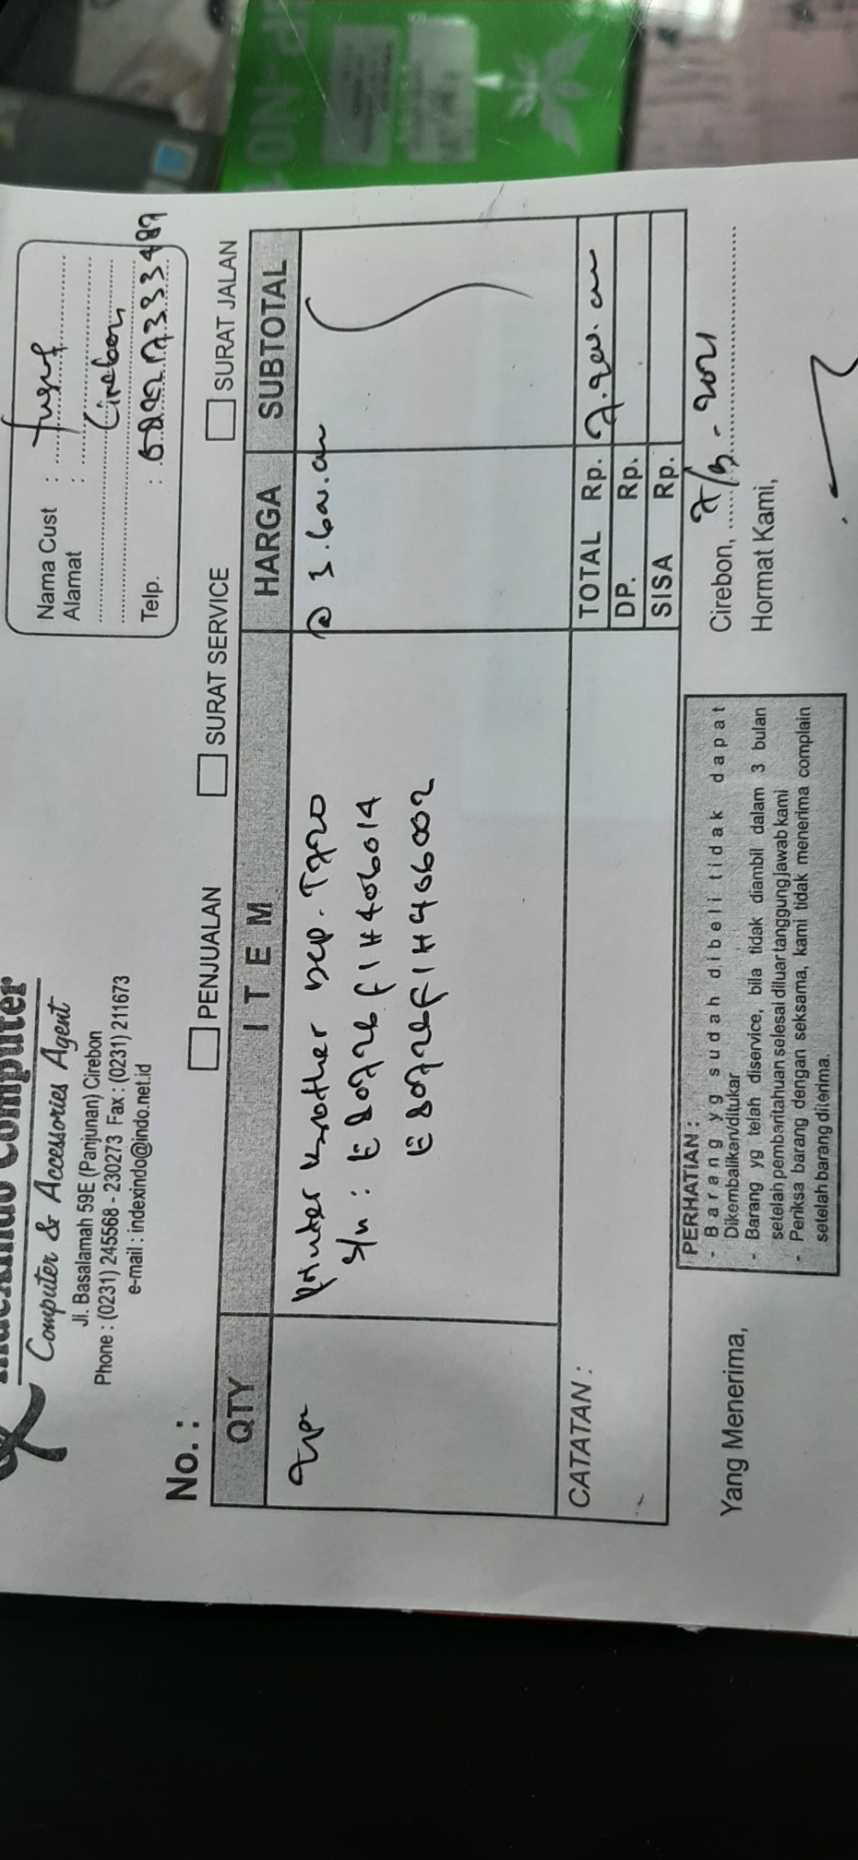 Computer & Accessories Agent
Jl. Basalamah 59E (Panjunan) Cirebon
Phone : (0231) 245568 - 230273 Fax : (0231) 211673
e-mail : indexindo@indo.net.id
Nama Cust : Yusuf
Alamat :
Cirebon
Telp. :
No. :
PENJUALAN SURAT SERVICE SURAT JALAN
QTY ITEM HARGA SUBTOTAL
Printer Brother DCP. T720
S/n : E80726F1H406014
E80726F1H406002
CATATAN :
TOTAL Rp.
DP. Rp.
SISA Rp.
Yang Menerima,
PERHATIAN :
- Barang yg sudah dibeli tidak dapat
Dikembalikan/ditukar
- Barang yg telah diservice, bila tidak diambil dalam 3 bulan
setelah pembaritahuan selesai diluar tanggung jawab kami
- Periksa barang dengan seksama, kami tidak menerima complain
setelah barang diterima.
Cirebon, 2021
Hormat Kami,